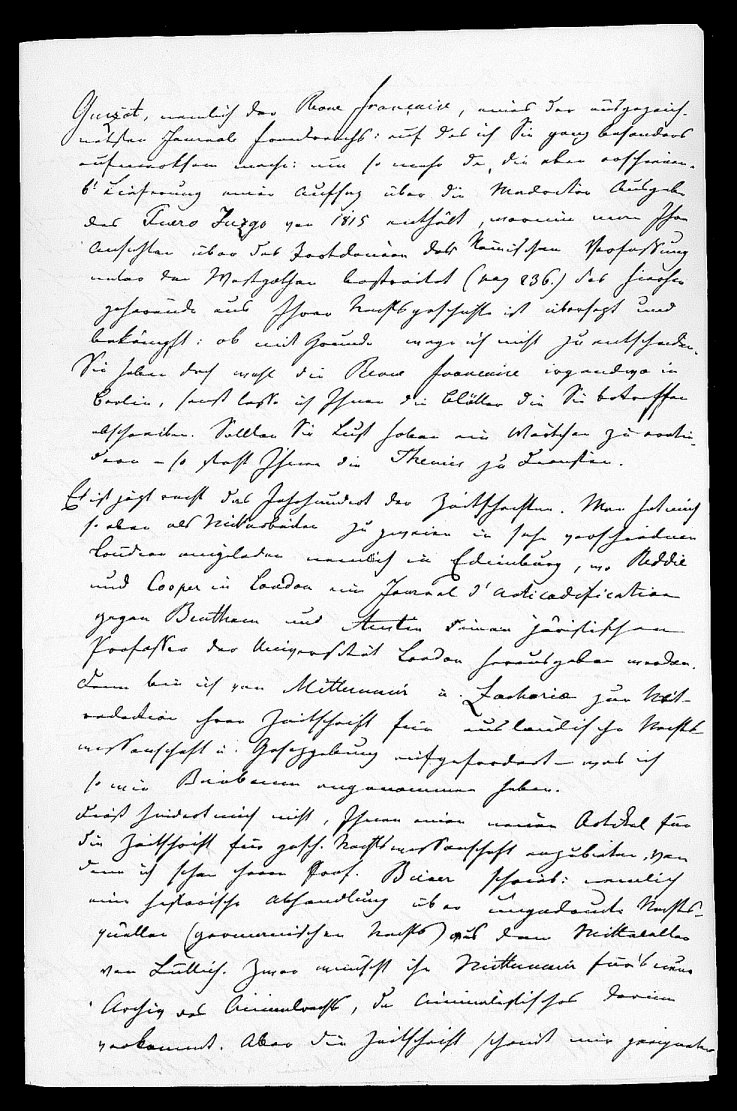 Guizot, nemlich der Revue française, eines der ausgezeich-
netsten Journale Frankreichs: auf das ich Sie ganz besonders
aufmerksam mache: um so mehr da, die eben erschienene
6t Lieferung einen Aufsatz über die Madrider Ausgabe
des Fuero Juzgo von 1815 enthält, worin man Ihre
Ansichten über das Fortdauern der Römischen Verfassung
unter den Westgothen bestreitet (pag 236.) das hierher
gehörende aus Ihrer Rechtsgeschichte ist übersetzt und
bekämpft: ob mit Grunde wage ich nicht zu entscheiden.
Sie haben doch wohl die Revue francaise irgendwo in
Berlin, sonst lasse ich Ihnen die Blätter die Sie betreffen
abschreiben. Sollten Sie Lust haben ein Wörtchen zu erwie-
dern – so steht Ihnen die Themis zu Diensten.
Es ist jetzt recht das Jahrhundert der Zeitschriften. Man hat mich
so eben als Mitarbeiter zu zweien in sehr verschiedenen
Ländern eingeladen nemlich in Edinburg, wo Reddie
und Cooper in London ein Journal d'anticodification
gegen Bentham und Austin einen juristischen
Professor der Universität London herausgeben werden.
Dann bin ich von Mittermaier u. Zachariä zur Mit-
redaction ihrer Zeitschrift für ausländische Rechts-
wissenschaft u. Gesetzgebung aufgefordert – was ich
so wie Birnbaum angenommen habe.
Dieß hindert mich nicht, Ihnen einen neuen Artikel für
die Zeitschrift für gesch. Rechtswissenschaft anzubieten, von
dem ich schon Herrn Prof. Biener schrieb: nemlich
eine historische Abhandlung über ungedruckte Rechts-
quellen (germanischen Rechts) aus dem Mittelalter
von Lüttich. Zwar wünscht ihn Mittermaier für's neue
Archiv des Criminalrechts, da Criminalistisches darin
vorkommt. Aber die Zeitschrift scheint mir geeigneter